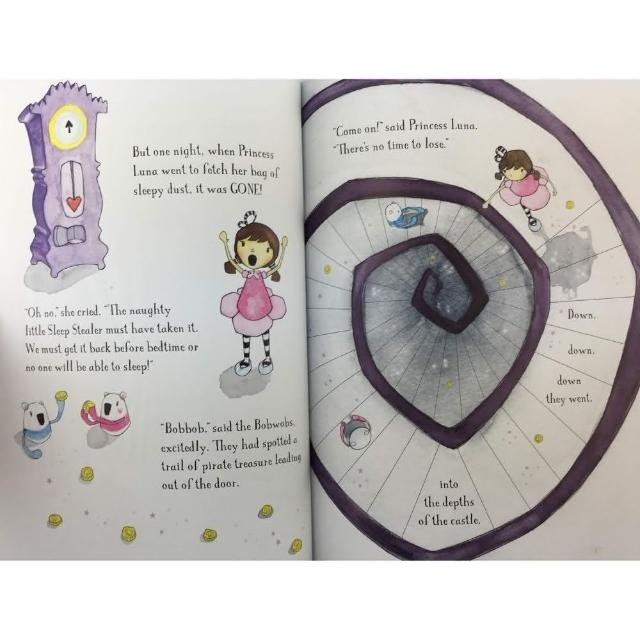 But one night, when Princess
Luna went to fetch her bag of
sleepy dust, it was GONE!
"Oh no," she cried. "The naughty
little Sleep Stealer must have taken it.
We must get it back before bedtime or
no one will be able to sleep!"
"Bobbob," said the Bobwobs,
excitedly. They had spotted a
trail of pirate treasure leading
out of the door.
"Come on!" said Princess Luna.
"There's no time to lose."
Down,
down,
down
they went,
into
the depths
of the castle.